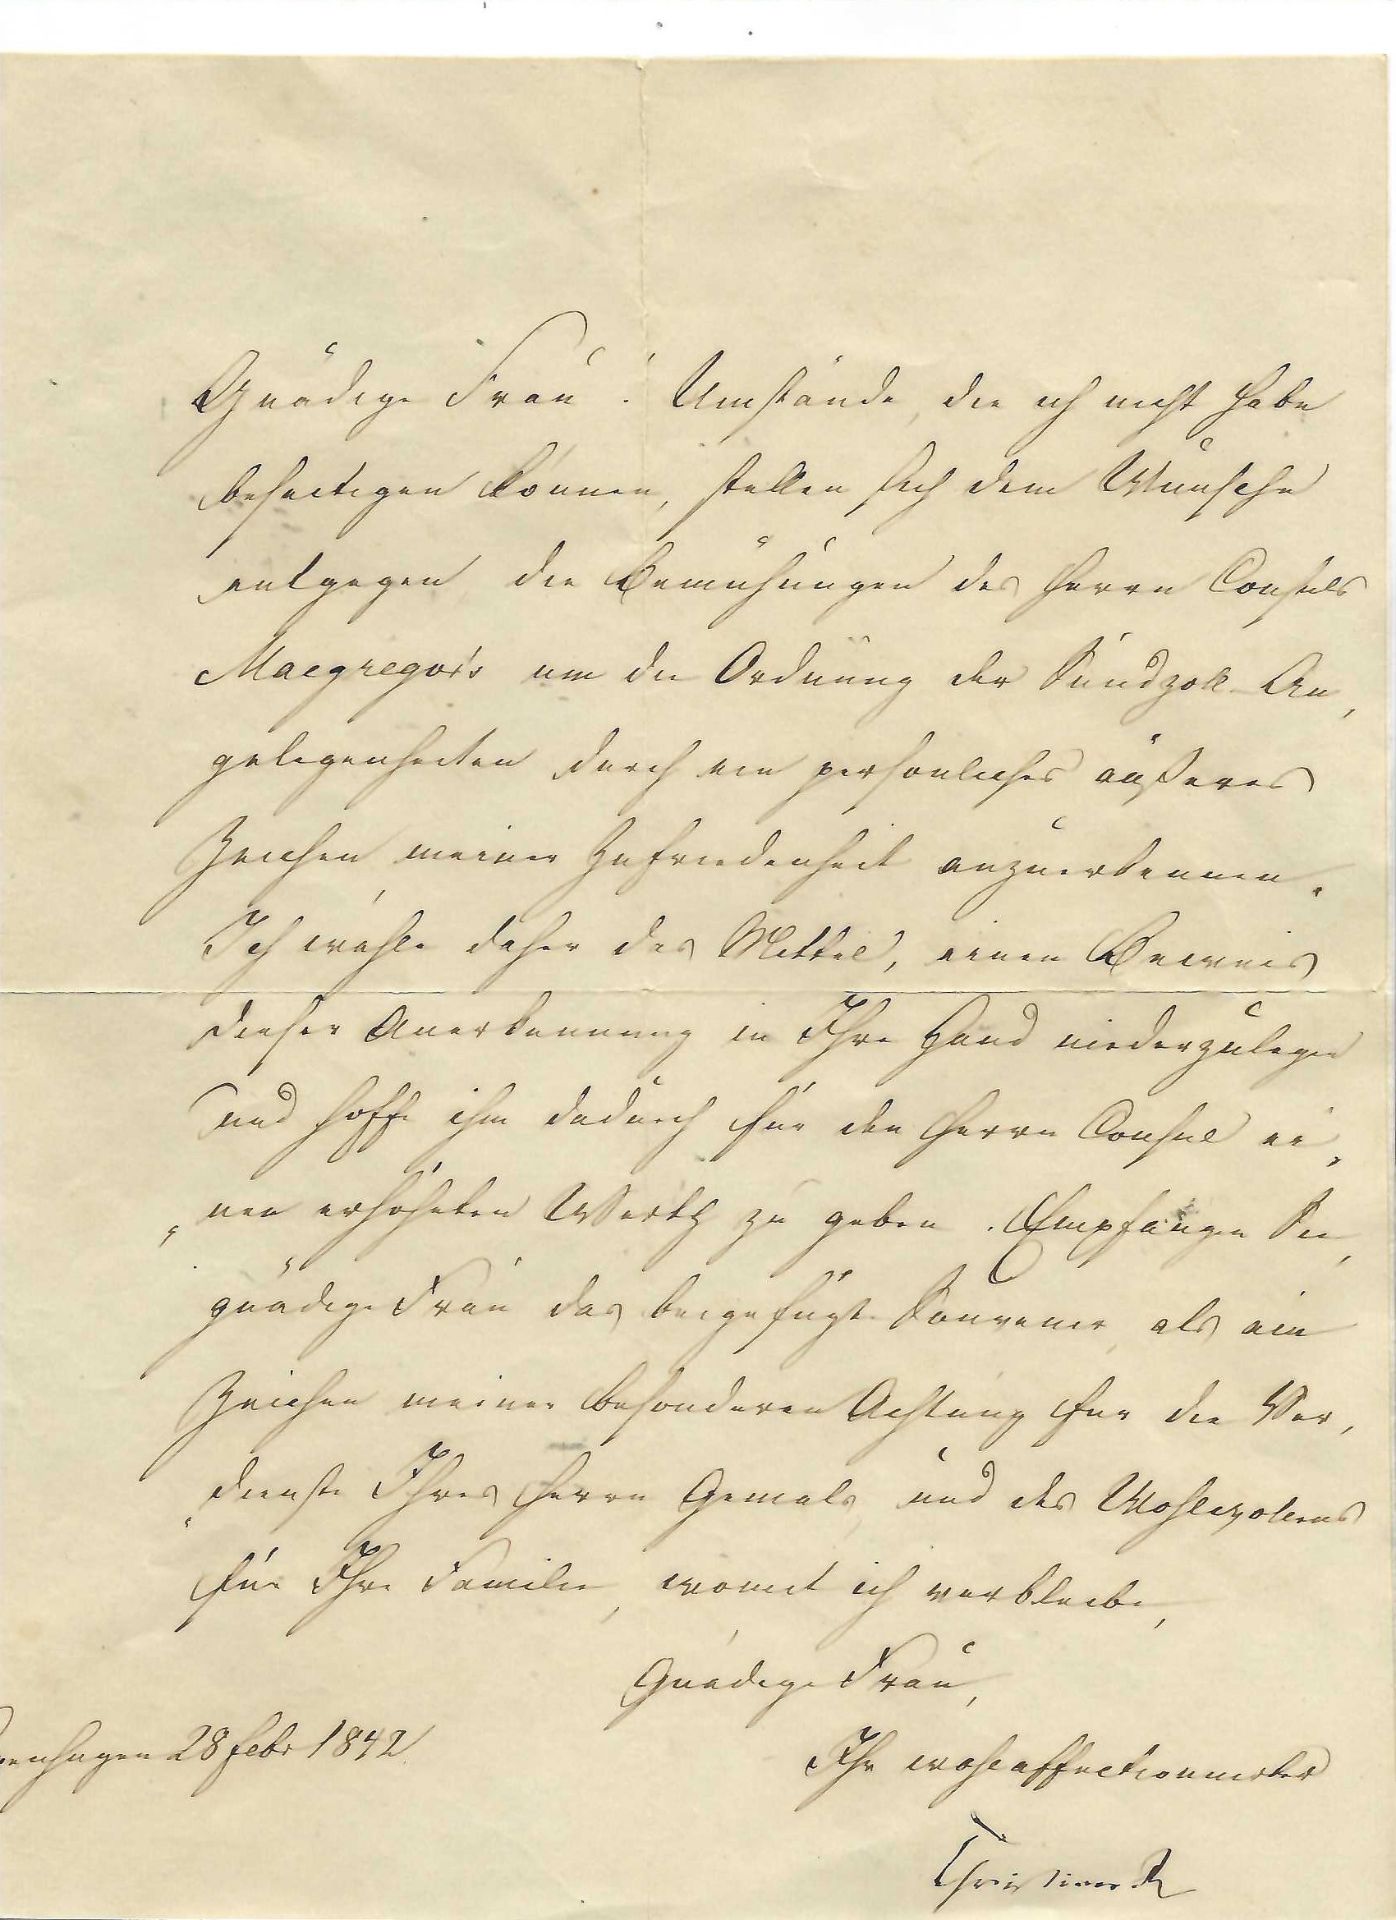 Gnädige Frau! Umstände, die ich nicht habe
beseitigen können, stellen sich dem Wunsche
entgegen die Bemühungen des Herrn Consuls
Macgregor's um die Ordnung der Sundzoll-An,
gelegenheiten durch ein persönliches äußeres
Zeichen meiner Zufriedenheit anzuerkennen.
Ich wähle daher das Mittel, einen Beweis
dieser Anerkennung in Ihre Hand niederzulegen
und hoffe ihm dadurch für den Herrn Consul ei,,
„nen erhöheten Werth zu geben. Empfangen Sie,
gnädige Frau das beigefügte Souvenir, als ein
Zeichen meiner besonderen Achtung für die Ver,
„dienste Ihres Herrn Gemals, und des Wohlwolens
für Ihre Familie, womit ich verbleibe,
Gnädige Frau,
penhagen 28 Febr 1842
Ihr wohlaffectionirter
Christian R